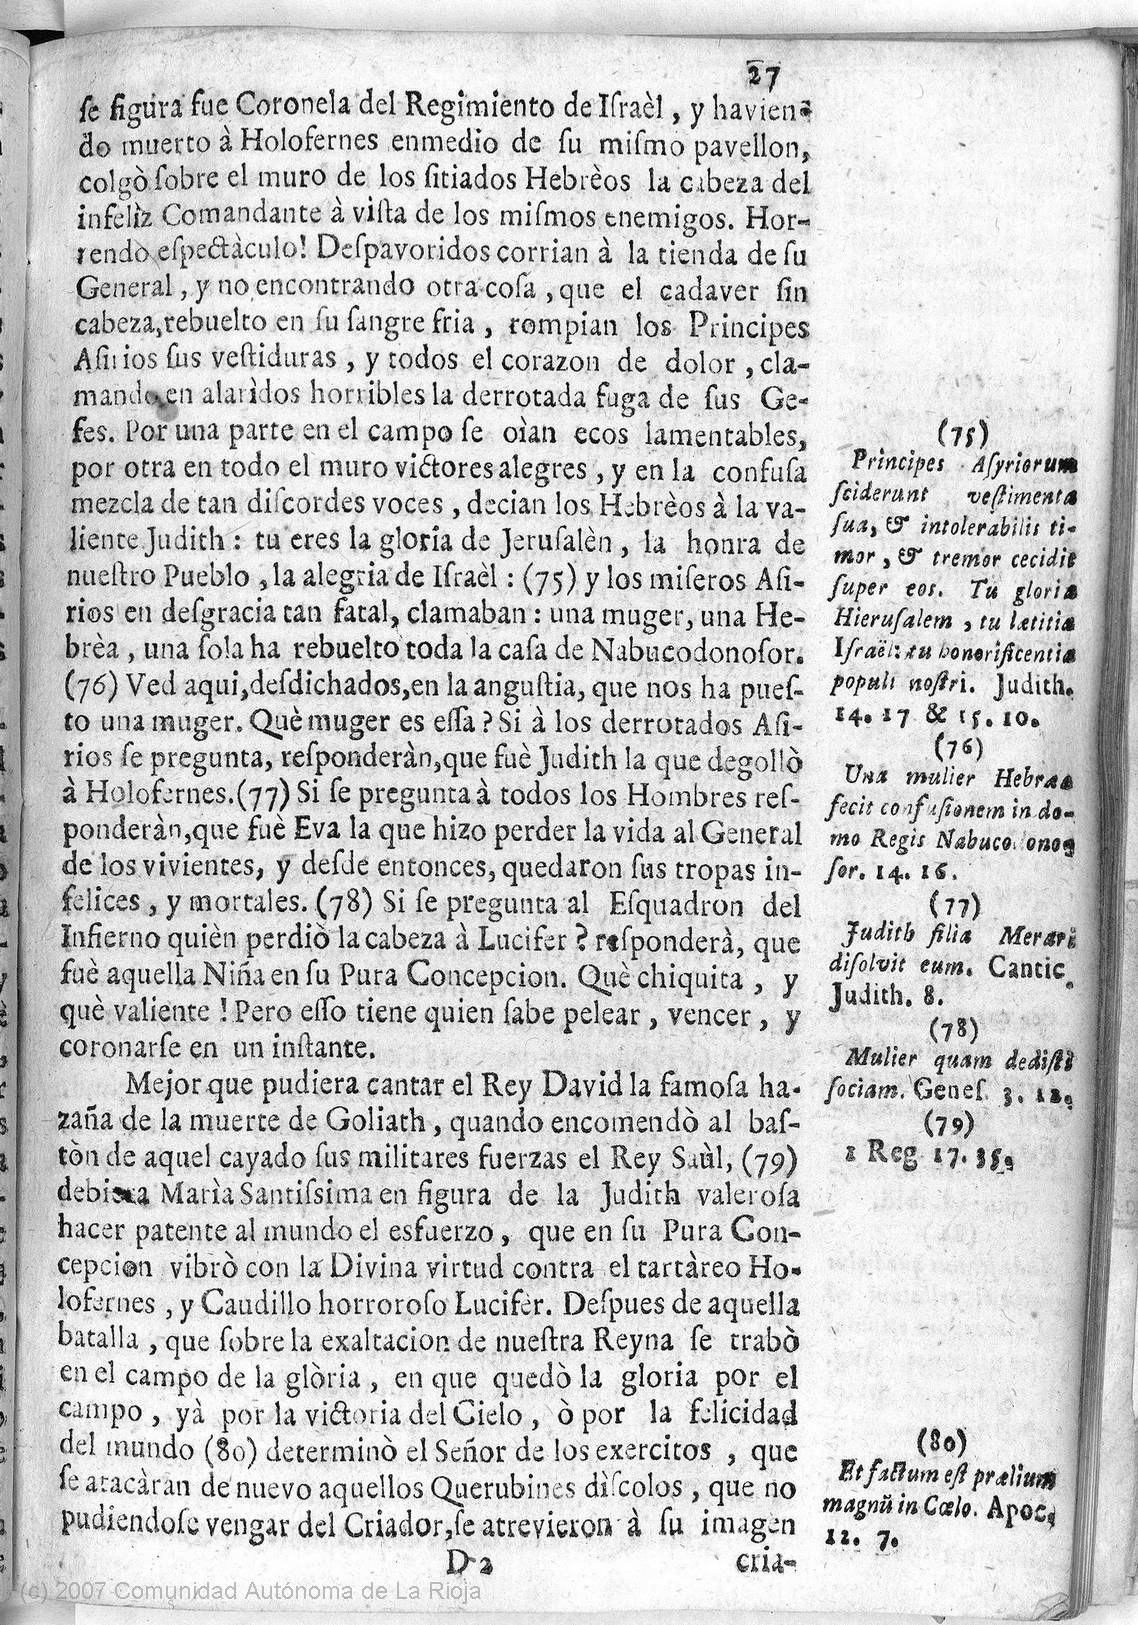 27
ſe figura fue Coronela del Regimiento de Iſraèl, y havien-
do muerto à Holofernes enmedio de ſu miſmo pavellon,
colgò ſobre el muro de los ſitiados Hebrèos la cabeza del
infelìz Comandante à viſta de los miſmos enemigos. Hor-
rendo eſpectàculo! Deſpavoridos corrian à la tienda de ſu
General, y no encontrando otra coſa, que el cadaver ſin
cabeza, rebuelto en ſu ſangre fria, rompian los Principes
Aſirios ſus veſtiduras, y todos el corazon de dolor, cla-
mando en alarìdos horribles la derrotada fuga de ſus Ge-
fes. Por una parte en el campo ſe oìan ecos lamentables,
por otra en todo el muro victores alegres, y en la confuſa
mezcla de tan diſcordes voces, decian los Hebrèos à la va-
liente Judith: tu eres la gloria de Jeruſalèn, la honra de
nueſtro Pueblo, la alegria de Iſraèl: (75) y los miſeros Aſi-
rios en deſgracia tan fatal, clamaban: una muger, una He-
brèa, una ſola ha rebuelto toda la caſa de Nabucodonoſor.
(76) Ved aqui, deſdichados, en la anguſtia, que nos ha pueſ-
to una muger. Què muger es eſſa? Si à los derrotados Aſi-
rios ſe pregunta, reſponderàn, que fuè Judith la que degollò
à Holofernes. (77) Si ſe pregunta à todos los Hombres reſ-
ponderàn, que fuè Eva la que hizo perder la vida al General
de los vivientes, y deſde entonces, quedaron ſus tropas in-
felices, y mortales. (78) Si ſe pregunta al Eſquadron del
Infierno quièn perdiò la cabeza à Lucifer? reſponderà, que
fuè aquella Niña en ſu Pura Concepcion. Què chiquita, y
què valiente! Pero eſſo tiene quien ſabe pelear, vencer, y
coronarſe en un inſtante.
Mejor que pudiera cantar el Rey David la famoſa ha-
zaña de la muerte de Goliath, quando encomendò al baſ-
tòn de aquel cayado ſus militares fuerzas el Rey Saùl, (79)
debiera Marìa Santiſsima en figura de la Judith valeroſa
hacer patente al mundo el esfuerzo, que en ſu Pura Con-
cepcion vibrò con la Divina virtud contra el tartàreo Ho-
lofernes, y Caudillo horroroſo Lucifèr. Deſpues de aquella
batalla, que ſobre la exaltacion de nueſtra Reyna ſe trabò
en el campo de la glòria, en que quedò la gloria por el
campo, yà por la victoria del Cielo, ò por la felicidad
del mundo (80) determinò el Señor de los exercitos, que
ſe atacàran de nuevo aquellos Querubines dìſcolos, que no
pudiendoſe vengar del Criador, ſe atrevieron à ſu imagen
D 2 cria-
(75)
Principes Aſyriorum
ſciderunt veſtimenta
ſua, & intolerabilis ti-
mor, & tremor cecidit
ſuper eos. Tu gloria
Hieruſalem, tu lætitia
Iſraël: tu honorificentia
populi noſtri. Judith.
14. 17 & 15. 10.
(76)
Una mulier Hebræa
fecit confuſionem in do-
mo Regis Nabucodono-
ſor. 14. 16.
(77)
Judith filia Merari
diſolvit eum. Cantic.
Judith. 8.
(78)
Mulier quam dediſti
ſociam. Geneſ. 3. 12.
(79)
1 Reg. 17. 35.
(80)
Et factum eſt prælium
magnũ in Cœlo. Apoc.
12. 7.
(c) 2007 Comunidad Autónoma de La Rioja